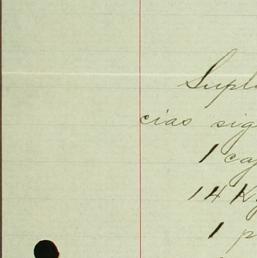 Supl
cias sig
1 caj
14 K
1 p